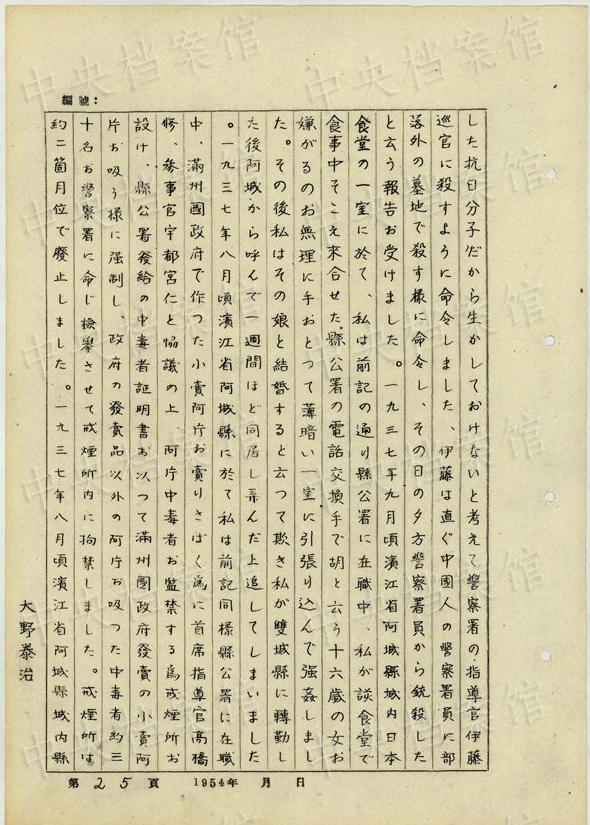 編號：
した抗日分子だから生かしておけないと考えて警察署の指導官伊藤
巡官に殺すように命令しました、伊藤は直ぐ中國人の警察署員に部
落外の墓地で殺す様に命令し、その日の夕方警察署員から銃殺した
と云う報告お受けました。一九三七年九月頃濱江省阿城縣城内日本
食堂の一室に於て、私は前記の通り縣公署に在職中、私が該食堂で
食事中そこえ来合せた縣公署の電話交換手で胡と云う十六歳の女お
嫌がるのお無理に手おとつて薄暗い一室に引張り込んで强姦しまし
た。その後私はその娘と結婚すると云つて欺き私が雙城縣に轉勤し
た後阿城から呼んで一週間ほど同居し弄んだ上追してしまいました
。一九三七年八月頃濱江省阿城縣に於て私は前記同様縣公署に在職
中、滿州國政府で作つた小賣阿片お賣りさばく為に首席指導官髙橋
修、參事官宇都宮仁と協議の上 阿片中毒者お監禁する為戒煙所お
設け、縣公署發給の中毒者証明書お以つて滿州國政府發賣の小賣阿
片お吸う様に强制し、政府の發賣品以外の阿片お吸つた中毒者約三
十名お警察署に命じ檢擧させて戒煙所内に拘禁しました。戒煙所は
約二箇月位で廢止しました。一九三七年八月頃濱江省阿城縣城内縣
大野泰治
第25頁 1954年 月 日
中央档案馆